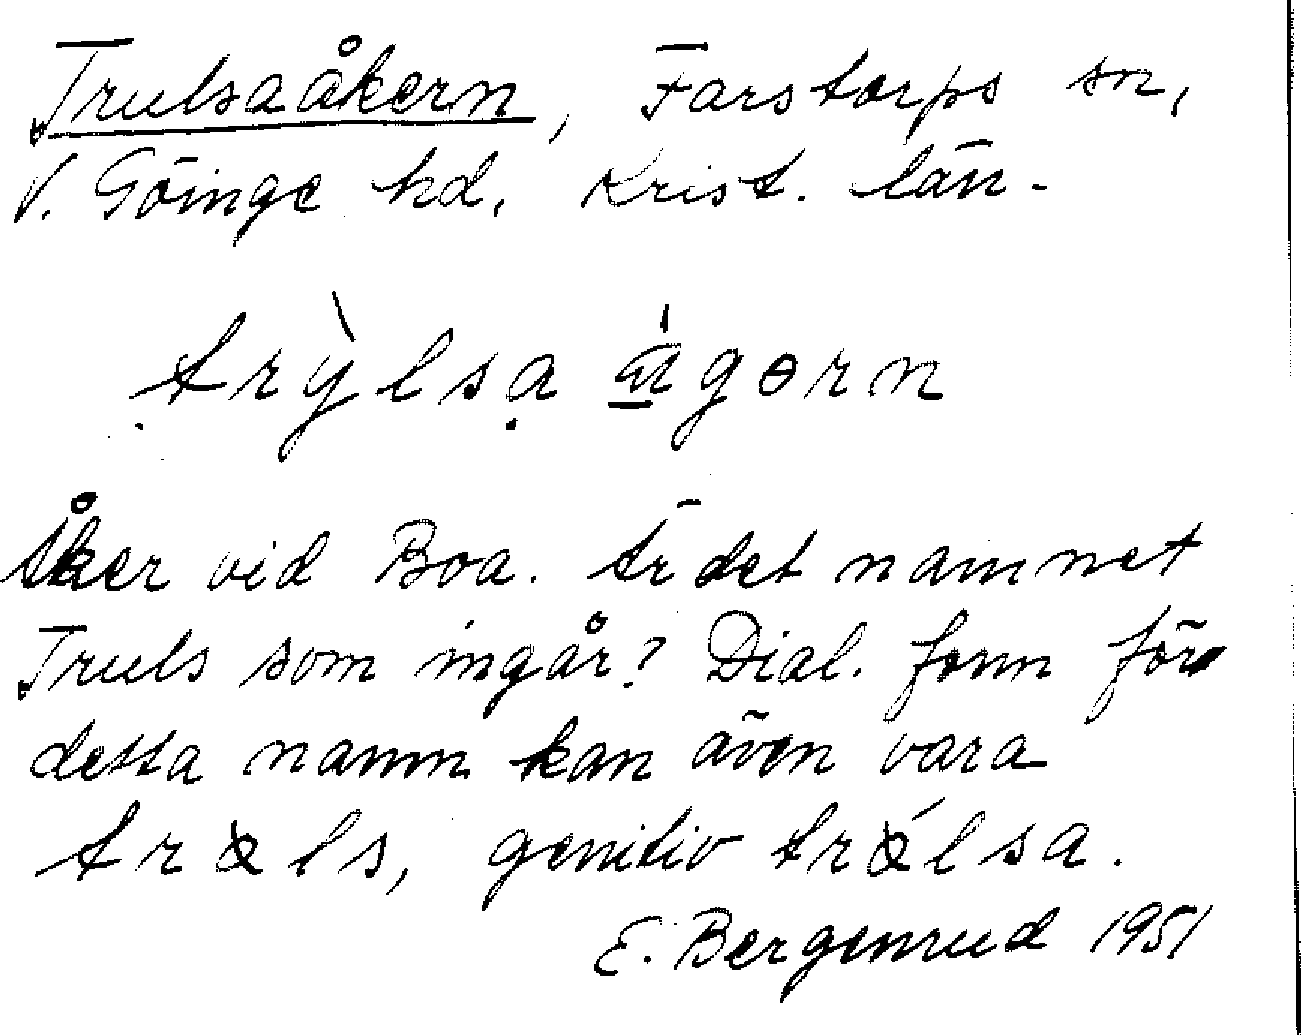 Trulsaåkern, Farstorps sn,
V. Göinge hd, Krist. län.
trỳlsạ ågərn
Åker vid Boa. Är det namnet
Truls som ingår? Dial. form för
detta namn kan även vara
trɷls, genitiv trɷ́lsa.
E. Bergenrud 1951